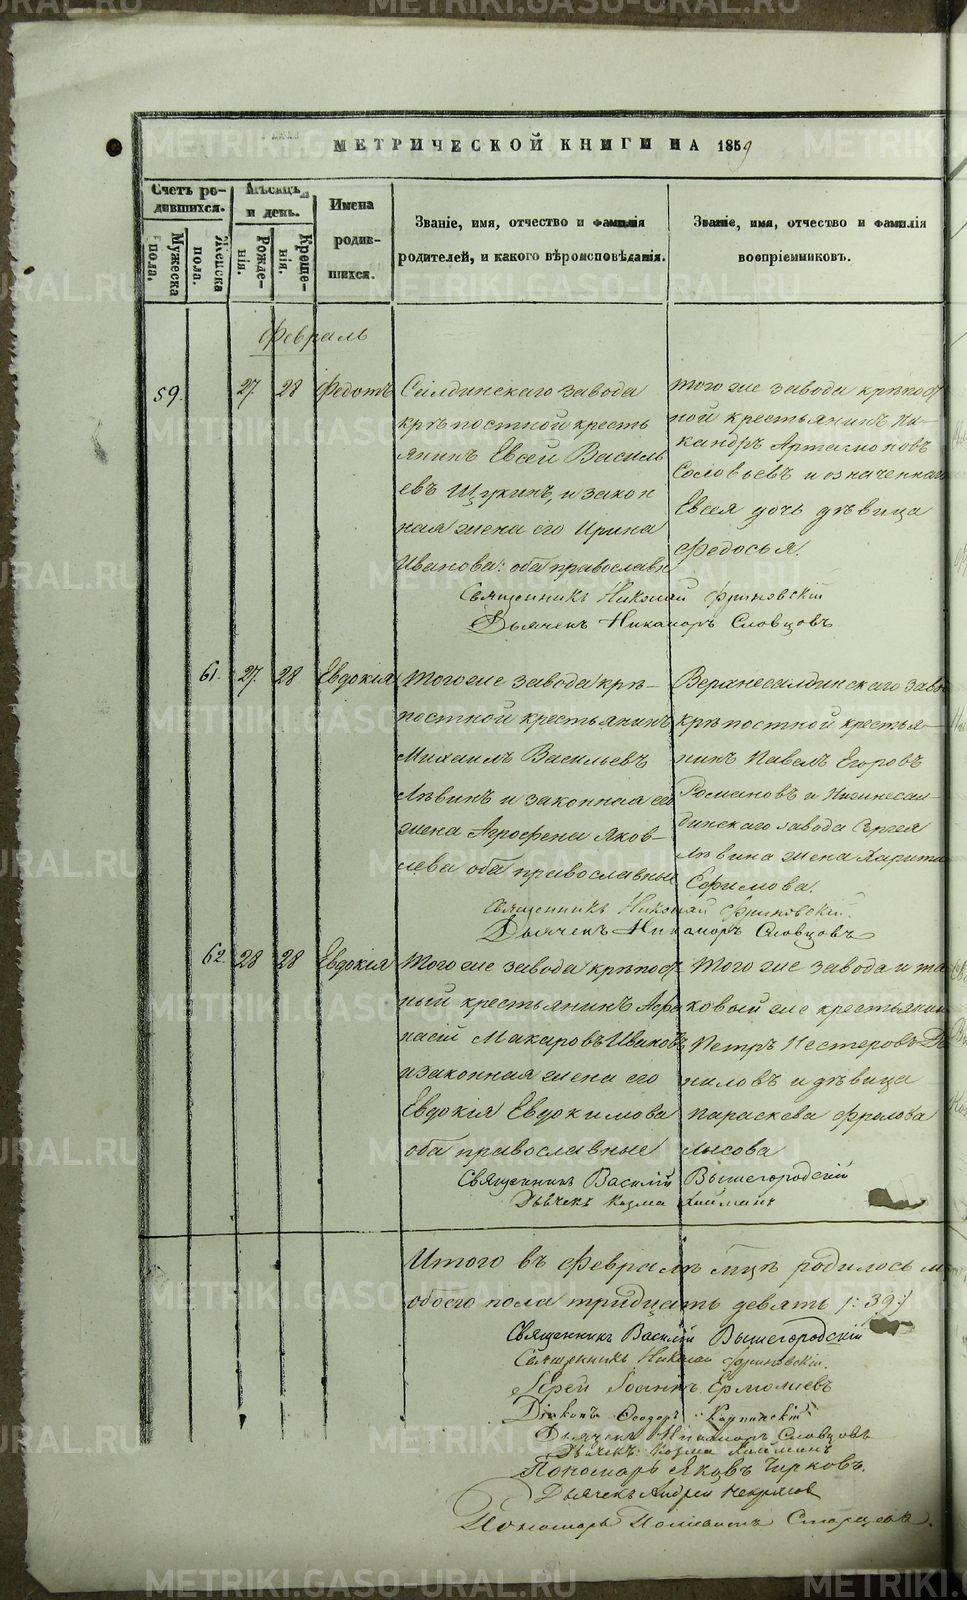 МЕТРИЧЕСКОЙ КНИГИ НА 1859
Счетъ ро-
дившихся.
Мѣсяцъ
и день.
Имена
родив-
шихся.
Званіе, имя, отчество и фамилія
родителей, и какого вѣроисповѣданія.
Званіе, имя, отчество и фамилія
воспріемниковъ.
Мужеска
пола.
Женска
пола.
Рожде-
нія.
Креще-
нія.
Февраль
59. 27. 28 Федотъ
Салдинскаго завода
крѣпостной кресть
янинъ Евсей Василь
евъ Щукинъ, и закон
ная жена его Ирина
Иванова: оба православн
того же завода крѣпост
ной крестьянинъ Ни-
кандръ Артамоновъ
Соловьевъ и означеннаго
Евсея дочь дѣвица
Федосья.
Священникъ Николай Фриновскій
Дьячекъ Никаноръ Словцовъ
61. 27. 28 Евдокія
Того же завода крѣ-
постной крестьянинъ
Михаилъ Васильевъ
Лѣвинъ и законная его
жена Агрофена Яков-
лева оба православные
Верхнесалдинскаго заво
крѣпостной крестья-
нинъ Павелъ Егоровъ
Романовъ и Нижнесал-
динскаго завода Сергея
Лѣвина жена Харити
Ефимова.
Священникъ Николай Фриновскій.
Дьячекъ Никаноръ Словцовъ
62 28 28 Евдокія
Того же завода крѣпост
ный крестьянинъ Афа
насій Макаровъ Ивановъ
и законная жена его
Евдокія Евдокимова
оба православные
Того же завода и та
ковый же крестьянин
Петръ Нестеровъ Да
ниловъ и дѣвица
Параскева Фролова
Лысова
Священникъ Василій Вышегородскій
Дьячекъ Козма Хайминъ
Итого въ Февралѣ мцѣ родилось
обоего пола тридцать девять /:39:/
Священникъ Василій Вышегородскій
Священникъ Николай Фриновскій.
Іерей Іоаннъ Ермолаевъ
Діаконъ Ѳеодоръ Карпинскій
Дьячекъ Никаноръ Словцовъ
Дьячекъ: Козма Хайминъ
Пономарь Яковъ Чирковъ.
Дьячекъ Андрей Некрасов
Пономарь Полиевктъ Старцевъ.
METRIKI.GASO-URAL.RU